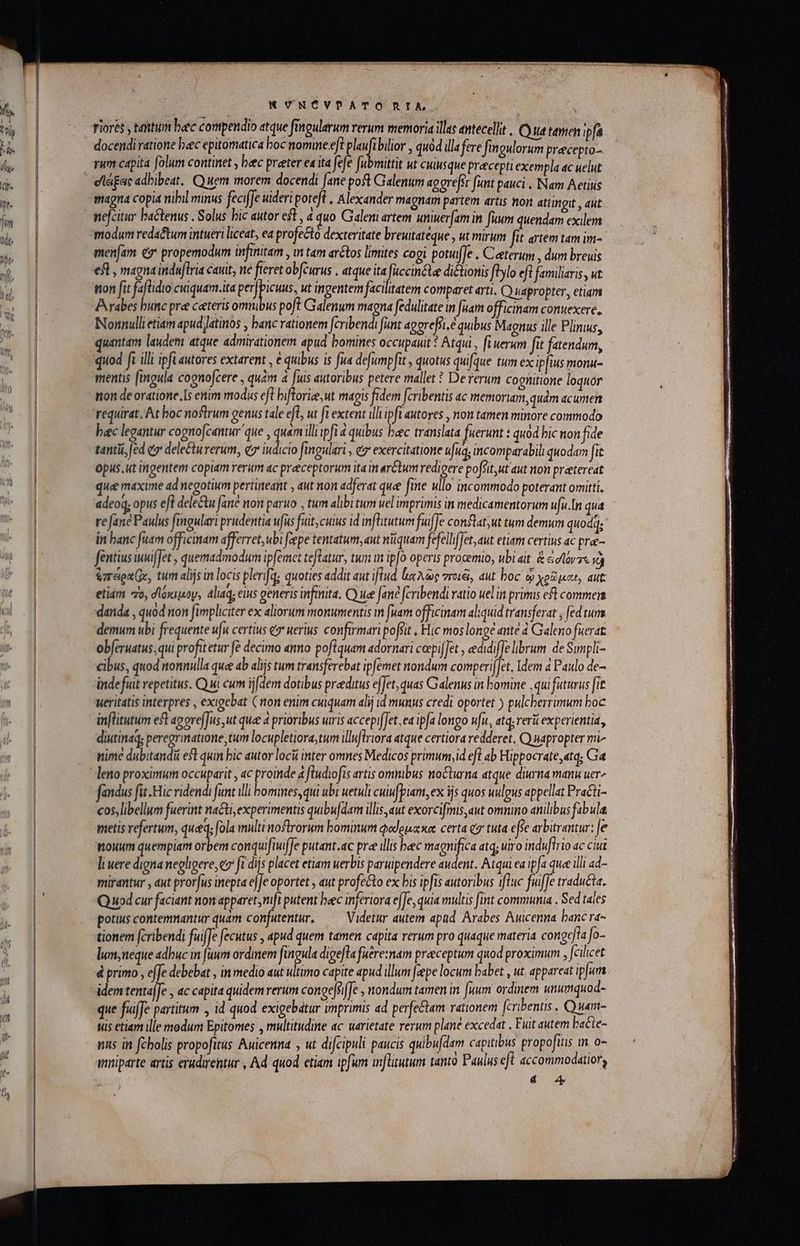 NVNCVPATORIA.
riores, tantum hæc compendio atque singularum rerum memoria illas antecellit. Qua tamen ipsa
docendi ratione hæc epitomatica hoc nomine est plausibilior, quòd illa fere singulorum præcepto-
rum capita solum continet, hæc præter ea ita sese submittit ut cuiusque præcepti exempla ac uelut
adhibeat. Quem morem docendi sane post Galenum aggressi sunt pauci. Nam Aetius
magna copia nihil minus fecisse uideri potest. Alexander magnam partem artis non attingit, aut
nescitur hactenus. Solus hic autor est, à quo Galeni artem uniuersam in suum quendam exilem
modum redactum intueri liceat, ea profectò dexteritate breuitatéque, ut mirum sit artem tam im-
mensam & propemodum infinitam, in tam arctos limites cogi potuisse. Cæterum, dum breuis
est, magna industria cauit, ne fieret obscurus. atque ita succinctæ dictionis stylo est familiaris, ut
non sit fastidio cuiquam. ita perspicuus, ut ingentem facilitatem comparet arti. Quapropter, etiam
Arabes hunc præ cæteris omnibus post Galenum magna sedulitate in suam officinam conuexere.
Nonnulli etiam apud latinos, hanc rationem scribendi sunt aggressi. è quibus Magnus ille Plinius,
quantam laudem atque admirationem apud homines occupauit? Atqui, si uerum sit fatendum,
quod si illi ipsi autores extarent, è quibus is sua desumpsit, quotus quisque tum ex ipsius monu-
mentis singula cognoscere, quàm à suis autoribus petere mallet? De rerum cognitione loquor
non de oratione. Is enim modus est historiæ, ut magis fidem scribentis ac memoriam, quàm acumen
requirat. At hoc nostrum genus tale est, ut si extent illi ipsi autores, non tamen minore commodo
hæc legantur cognoscantur que, quàm illi ipsi à quibus hæc translata fuerunt: quòd hic non fide
tantũ, sed & delectu rerum, & iudicio singulari, & exercitatione usuq; incomparabili quodam sit
opus. ut ingentem copiam rerum ac præceptorum ita in arctum redigere possit, ut aut non prætereat
quæ maxime ad negotium pertineant, aut non adferat quæ sine ullo incommodo poterant omitti.
adeoq; opus est delectu sanè non paruo, tum alibi tum uel imprimis in medicamentorum usu. In qua
re sanè Paulus singulari prudentia usus fuit, cuius id institutum fuisse constat, ut tum demum quodq;
in hanc suam officinam afferret, ubi sæpe tentatum, aut nũquam fefellisset, aut etiam certius ac præ-
sentius iuuisset, quemadmodum ipsemet testatur, tum in ipso operis prooemio, ubi ait
tum alijs in locis plerisq; quoties addit aut istud aut hoc aut
etiam aliaq; eius generis infinita. Quæ sanè scribendi ratio uel in primis est commen
danda, quòd non simpliciter ex aliorum monumentis in suam officinam aliquid transferat, sed tum
demum ubi frequente usu certius & uerius confirmari possit. Hic mos longè antè à Galeno fuerat
obseruatus, qui profitetur se decimo anno postquam adornari coepisset, ædidisse librum de Simpli-
cibus, quod nonnulla quæ ab alijs tum transferebat ipsemet nondum comperisset. Idem à Paulo de-
inde fuit repetitus. Qui cum ijsdem dotibus præditus esset, quas Galenus in homine, qui futurus sit
ueritatis interpres, exigebat (non enim cuiquam alij id munus credi oportet) pulcherrimum hoc
institutum est aggressus, ut quæ à prioribus uiris accepisset, ea ipsa longo usu, atq; rerũ experientia,
diutinaq; peregrinatione, tum locupletiora, tum illustriora atque certiora redderet. Quapropter mi-
nime dubitandũ est quin hic autor locũ inter omnes Medicos primum, id est ab Hippocrate, atq; Ga
leno proximum occuparit, ac proinde à studiosis artis omnibus nocturna atque diurna manu uer-
sandus sit. Hic ridendi sunt illi homines, qui ubi uetuli cuiuspiam, ex ijs quos uulgus appellat Practi-
cos, libellum fuerint nacti, experimentis quibusdam illis, aut exorcismis, aut omnino anilibus fabula
metis refertum, quæq; sola multi nostrorum hominum certa & tuta esse arbitrantur: se
nouum quempiam orbem conquisiuisse putant. ac præ illis hæc magnifica atq; uiro industrio ac ciui
li uere digna negligere, & si dijs placet etiam uerbis paruipendere audent. Atqui ea ipsa quæ illi ad-
mirantur, aut prorsus inepta esse oportet, aut profectò ex his ipsis autoribus istuc fuisse traducta.
Quod cur faciant non apparet, nisi putent hæc inferiora esse, quia multis sint communia. Sed tales
potius contemnantur quàm confutentur. Videtur autem apud Arabes Auicenna hanc ra-
tionem scribendi fuisse secutus, apud quem tamen capita rerum pro quaque materia congesta so-
lum, neque adhuc in suum ordinem singula digesta fuêre: nam præceptum quod proximum, scilicet
à primo, esse debebat, in medio aut ultimo capite apud illum sæpe locum habet, ut appareat ipsum
idem tentasse, ac capita quidem rerum congessisse, nondum tamen in suum ordinem unumquod-
que fuisse partitum, id quod exigebatur imprimis ad perfectam rationem scribentis. Quam-
uis etiam ille modum Epitomes, multitudine ac uarietate rerum planè excedat. Fuit autem hacte-
nus in scholis propositus Auicenna, ut discipuli paucis quibusdam capitibus propositis in o-
mniparte artis erudirentur, Ad quod etiam ipsum institutum tantò Paulus est accommodatior,
a 4